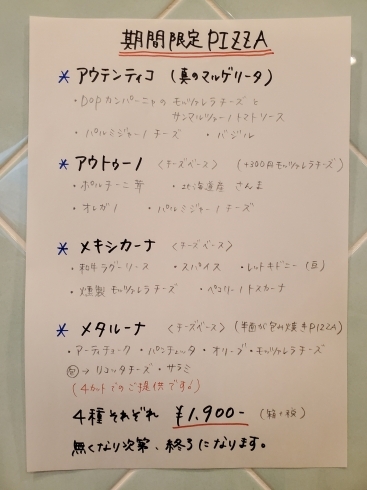 期間限定PIZZA
* アウテンティコ (真のマルゲリータ)
・DOPカンパーニャのモッツァレラチーズと
サンマルツァーノトマトソース
・パルミジャーノチーズ ・バジル
* アウトゥーノ 〈チーズベース〉 (+300円モッツァレラチーズ)
・ポルチーニ茸 ・北海道産 さんま
・オレガノ ・パルミジャーノチーズ
* メキシカーナ 〈チーズベース〉
・和牛ラグーソース ・スパイス ・レッドキドニー (豆)
・燻製モッツァレラチーズ ・ペコリーノトスカーナ
* メタルーナ 〈チーズベース〉 (半面が包み焼きPIZZA)
・アーティチョーク ・パンチェッタ ・オリーブ ・モッツァレラチーズ
包→リコッタチーズ・サラミ
(4カットでのご提供です。)
4種それぞれ ¥1,900-
無くなり次第、終了になります。